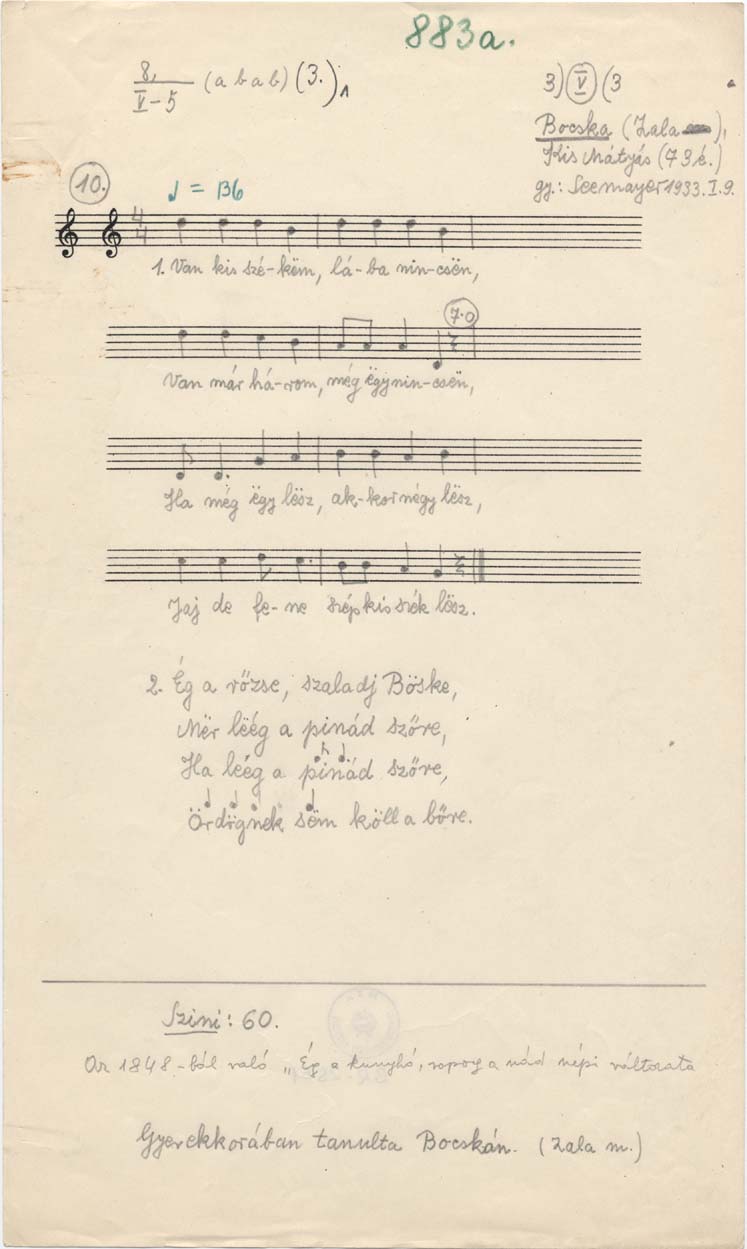 883a.
8. (a b a b) (3.)1
V-5
3) V (3
Bocska (Zala ),
Kis Mátyás (73é.)
gy.: Seemayer 1933. I. 9.
10.
♩ = 136
4
4
1. Van kis szé-këm, lá-ba nin-csën,
7.0
Van már há-rom, még ëgy nin-csën,
Ha még ëgy lësz, ak-kor négy lësz,
Jaj de fe-ne szép kis szék lësz.
2. Ég a rőzse, szaladj Böske,
Mër lëég a pinád szőre,
Ha leég a pinád szőre,
Ördögnek sëm köll a bőre.
Szini: 60.
Az 1848-ból való „Ég a kunyhó, ropog a nád népi változata
Gyerekkorában tanulta Bocskán. (Zala m.)